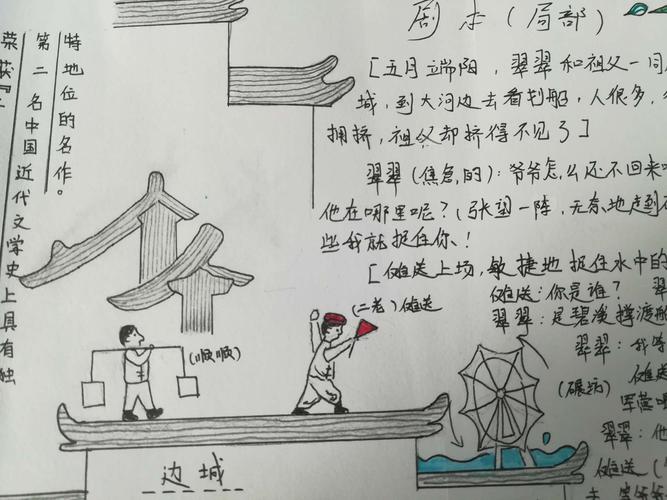 荣获『
第二名中国近代文学史上具有独
特地位的名作。
剧本（局部）
[五月端阳，翠翠和祖父一同
城，到大河边去看划船，人很多，
拥挤，祖父却挤得不见了]
翠翠（焦急的）：爷爷怎么还不回来
他在哪里呢？（张望一阵，无奈地走到
些我就捉住你！
[傩送上场，敏捷地捉住水中的
傩送：你是谁？ 翠
翠翠：是碧溪撑渡船
翠翠：我
傩送
军营
翠翠：他
傩送（
（顺顺）
（二老）傩送
（碾坊）
边城